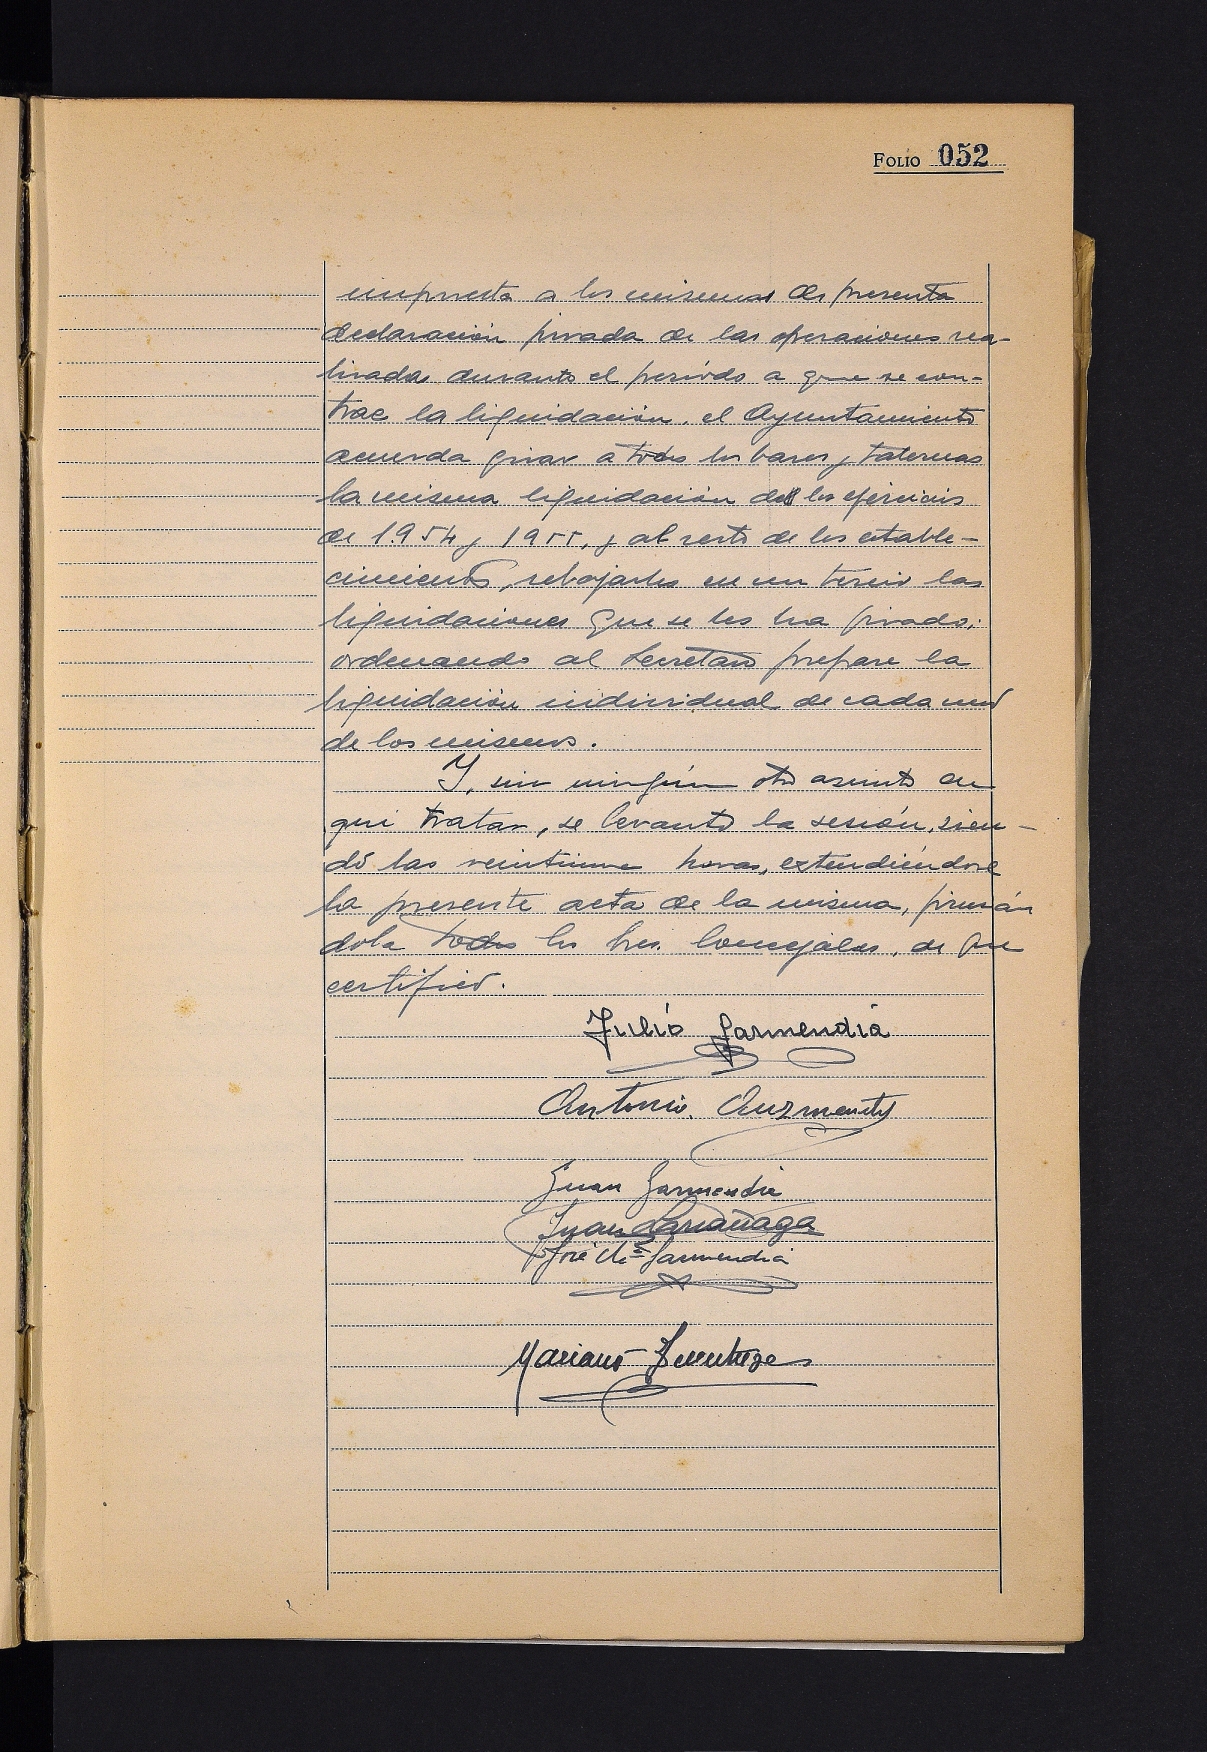 FOLIO 052
impuesta a los mismos de presenta
declaración jurada de las operaciones rea-
lizadas durante el período a que se con-
trae la liquidación, el Ayuntamiento
acuerda girar a todos los bares y tabernas
la misma liquidación de los ejercicios
de 1.954 y 1955, y al resto de los estable-
cimientos, rebajarles en un tercio las
liquidaciones que se les ha girado;
ordenando al Secretario prepare la
liquidación individual de cada uno
de los mismos.
Y, sin ningún otro asunto de
que tratar, se levanto la sesión, sien-
dó las veintiuna horas, extendiéndose
la presente acta de la misma, firmán
dola todos los Sres. Concejales, de que
certifico.
Julio Garmendia
Antonio Auzmendi
Juan Garmendia
Juan Larrañaga
José Mª Garmendia
Mariano